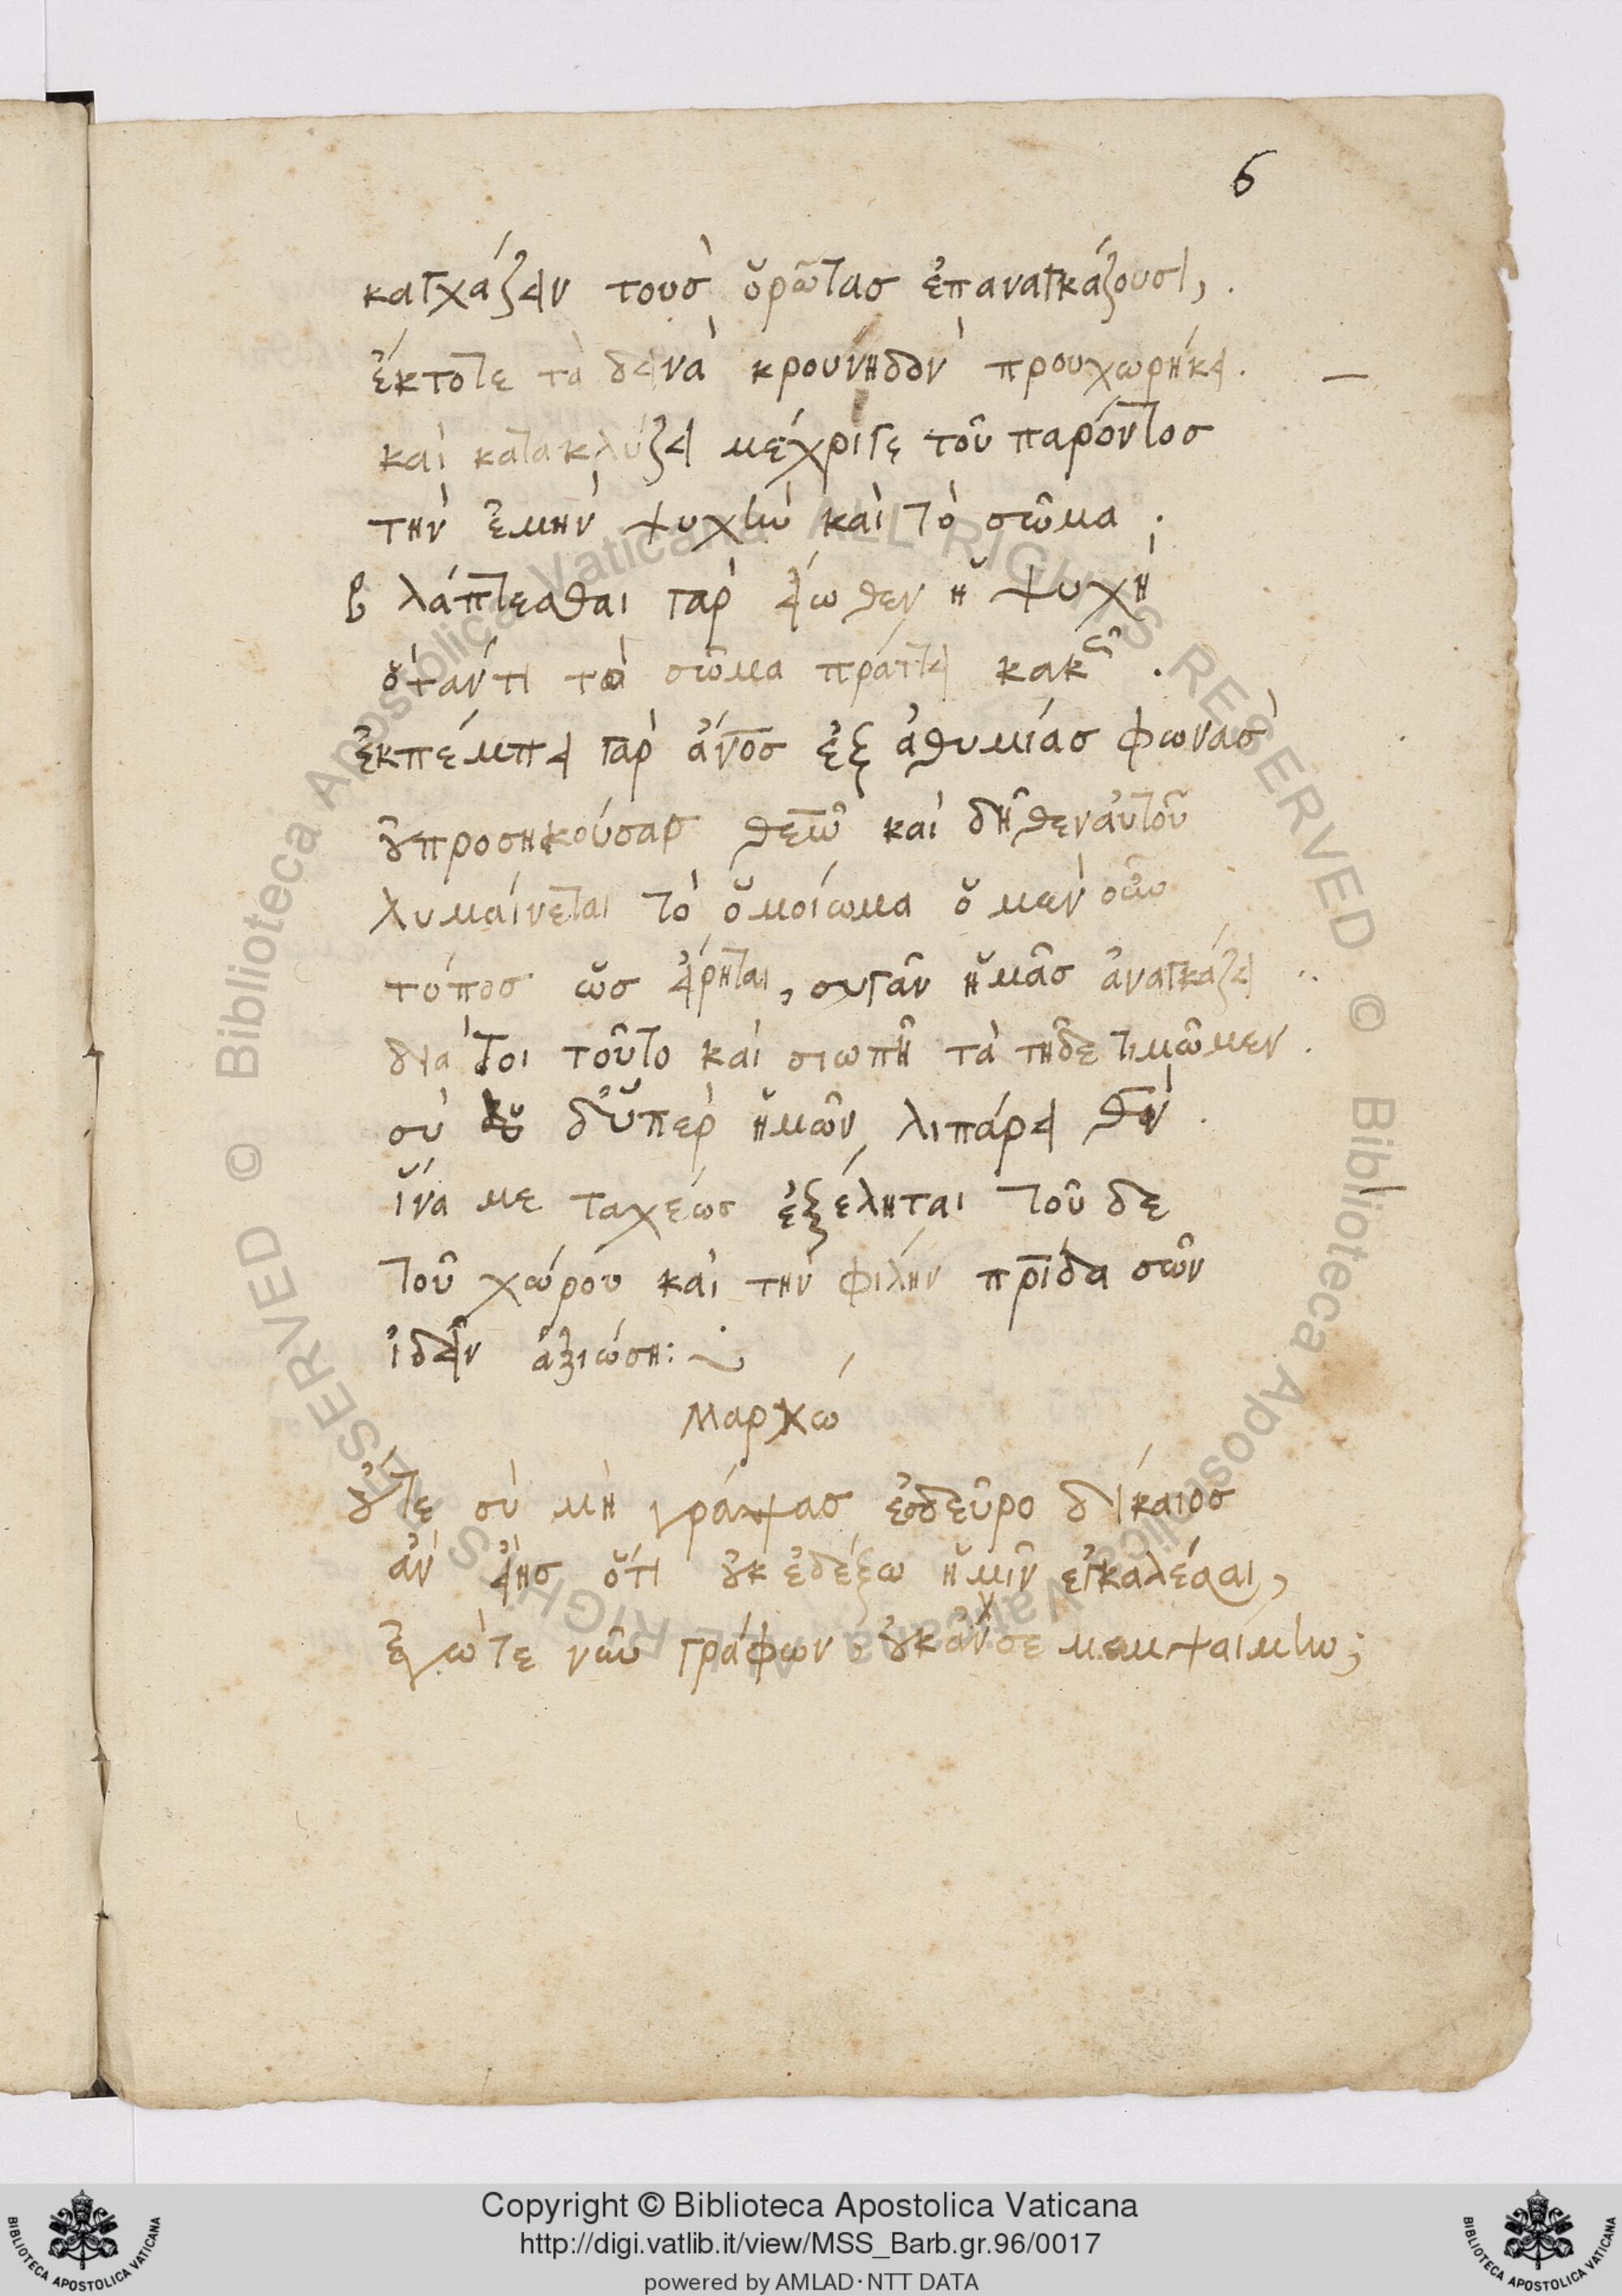 6
καγχάζειν τοὺς ὁρῶτας ἐπαναγκάζουσι,.
ἔκτοτε τὰ δεινὰ κρουνηδὸν προυχωρήκει.
καὶ κατακλύζει μέχριγε τοῦ παρόντος
τὴν ἐμὴν ψυχὴν καὶ τὸ σῶμα.
βλάπτεσθαι γὰρ εἴωθεν ἡ ψυχὴ
ὅτάντι τὸ σῶμα πράττει κακῶς.
ἐκπέμπει γὰρ ἄνος ἐξ ἀθυμίας φωνὰς
οὐπροσηκούσας θεῶ καὶ δῆθεναὐτοῦ
λυμαίνεται τὸ ὁμοίωμα ὁ μὲν οὖν
τόπος ὡς εἴρηται, σιγᾶν ἡμᾶς ἀναγκάζει
διὰ τοι τοῦτο καὶ σιωπῆ τὰ τῆδε τιμῶμεν.
σὺ δ' ὑπὲρ ἡμῶν λιπάρει θν.
ἵνα με ταχέως ἐξέληται τοῦ δε
τοῦ χώρου καὶ τὴν φίλην πρίδα σῶν
ἰδεῖν ἀξιώση:
Μαρχώ
οὔτε σὺ μὴ γράψας ἐςδεῦρο δίκαιος
ἂν εἴης ὅτι οὐκ ἐδέξω ἡμῖν ἐγκαλέσαι,
ἐγώ τε νῦν γράφων οὐκ ἄν σε μεμψαίμην;
Copyright © Biblioteca Apostolica Vaticana
http://digi.vatlib.it/view/MSS_Barb.gr.96/0017
powered by AMLAD·NTT DATA